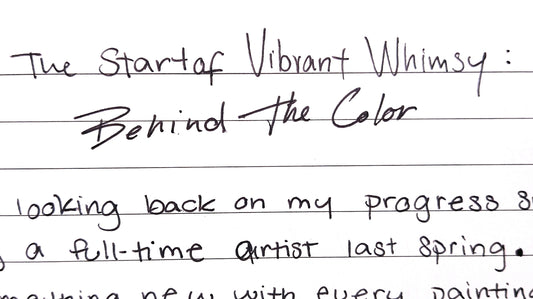 The Start of Vibrant Whimsy :
Behind The Color
looking back on my progress s
a full-time artist last spring.
new with every painting